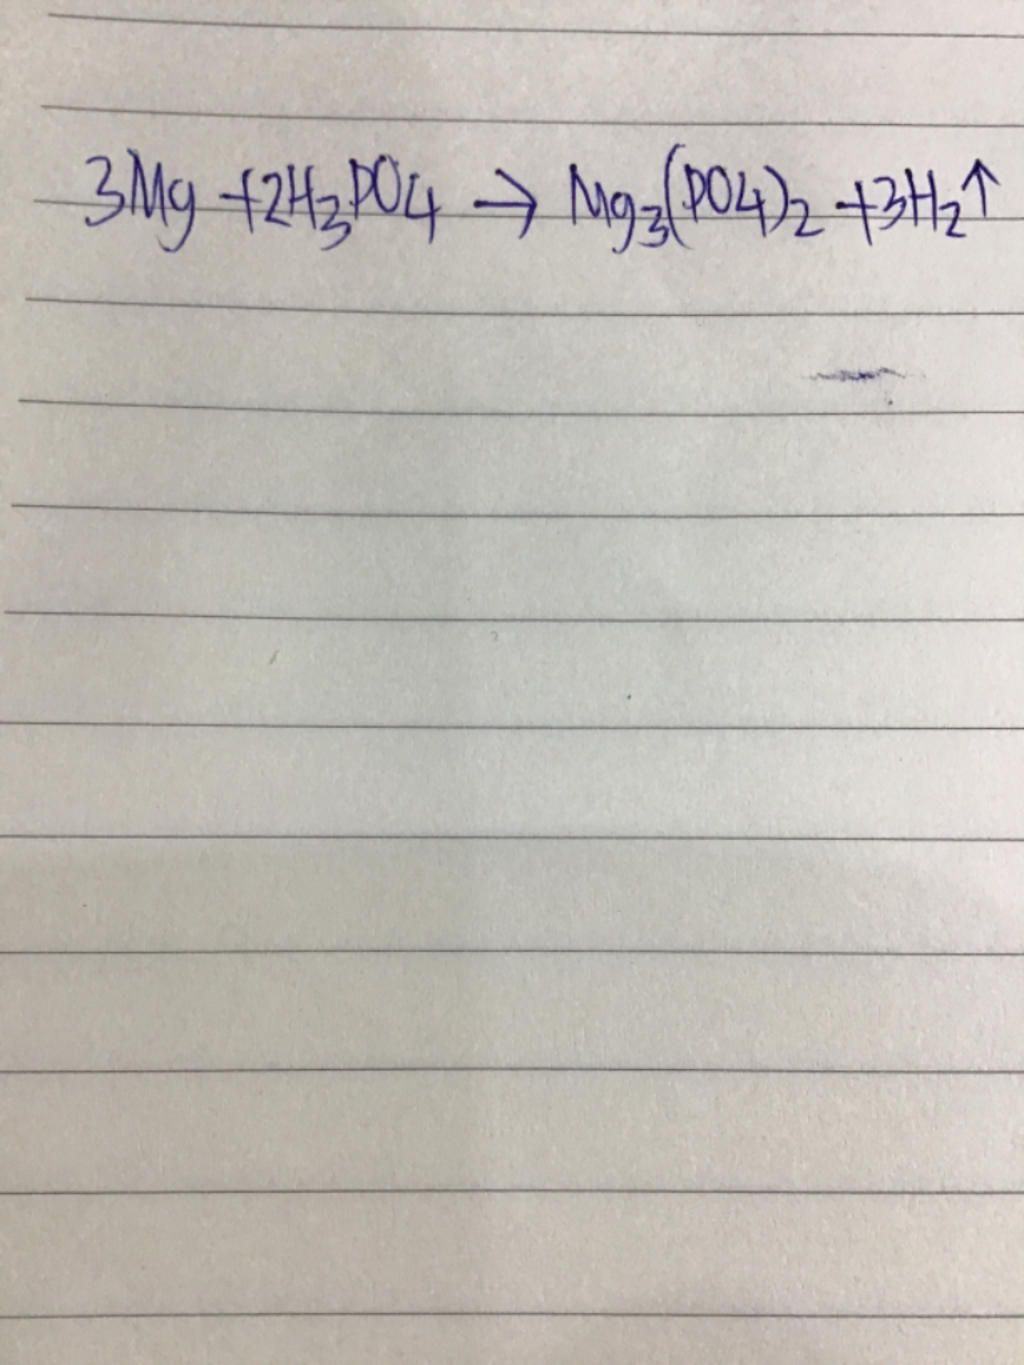 3Mg +2H₃PO4 → Mg₃(PO4)₂ +3H₂↑